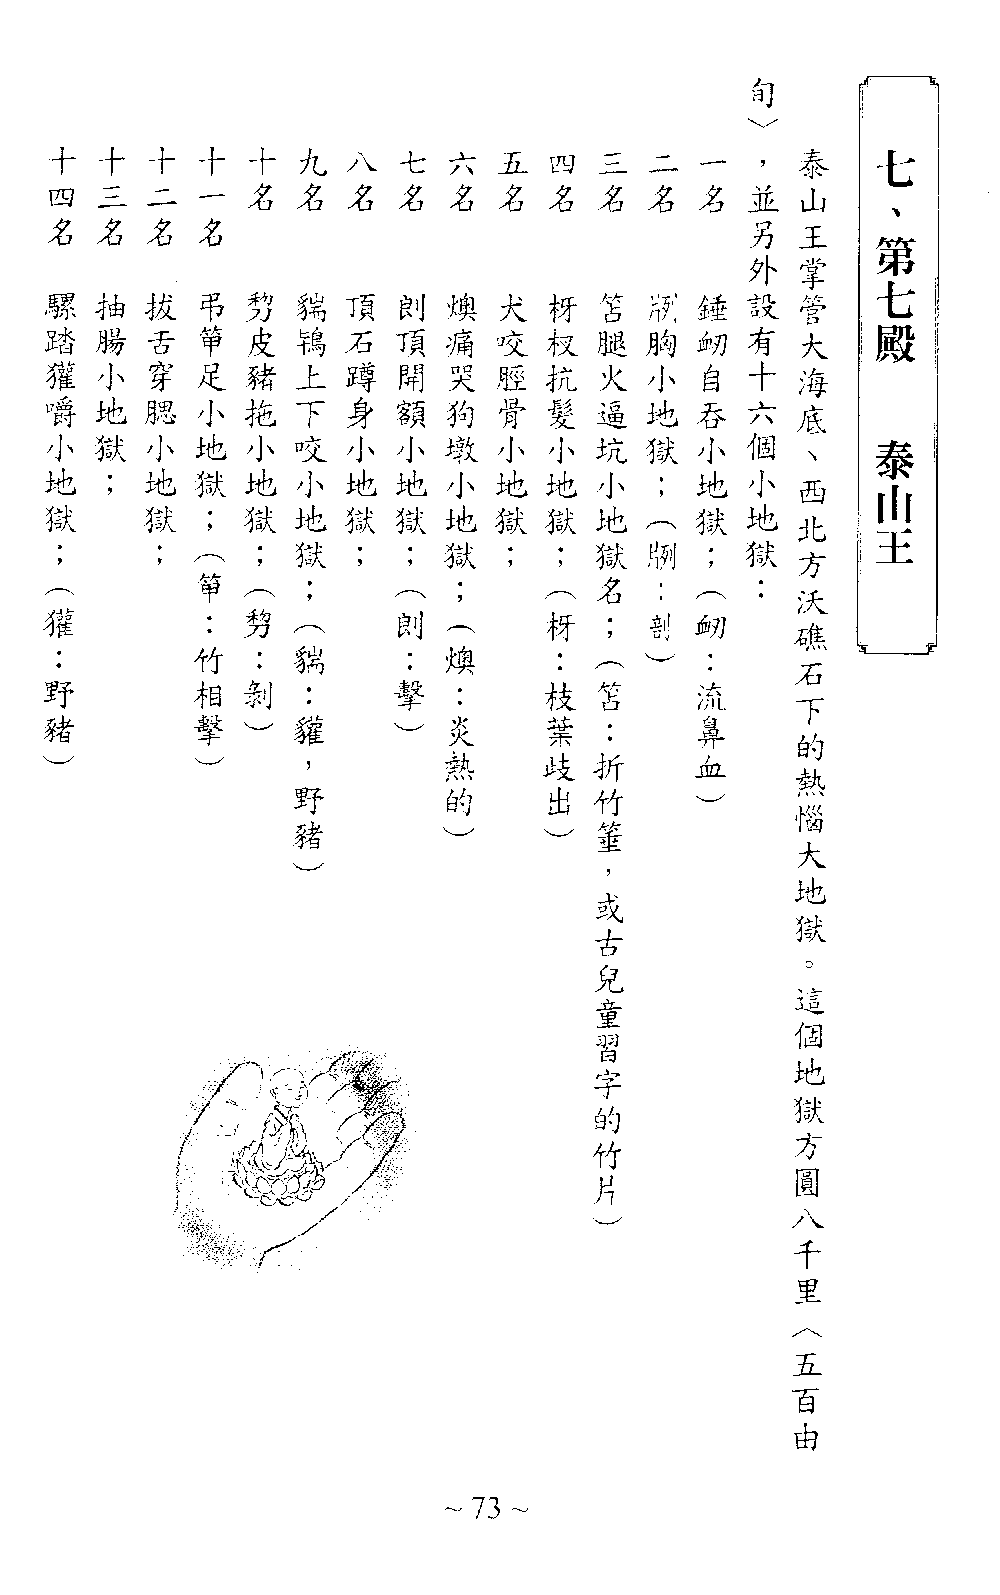 七、第七殿　泰山王
泰山王掌管大海底、西北方沃礁石下的熱惱大地獄。這個地獄方圓八千里〈五百由
旬〉，並另外設有十六個小地獄：
一名　錘衂自吞小地獄；（衂：流鼻血）
二名　胸小地獄；（：剖）
三名　笞腿火逼坑小地獄名；（笞：折竹箠，或古兒童習字的竹片）
四名　枒杈抗髮小地獄；（枒：枝葉歧出）
五名　犬咬脛骨小地獄；
六名　燠痛哭狗墩小地獄；（燠：炎熱的）
七名　頂開額小地獄；（：擊）
八名　頂石蹲身小地獄；
九名　貒鴇上下咬小地獄；（貒：貛，野豬）
十名　剺皮豬拖小地獄；（剺：剝）
十一名　弔箄足小地獄；（箄：竹相擊）
十二名　拔舌穿腮小地獄；
十三名　抽腸小地獄；
十四名　騾踏獾嚼小地獄；（獾：野豬）
~ 73 ~